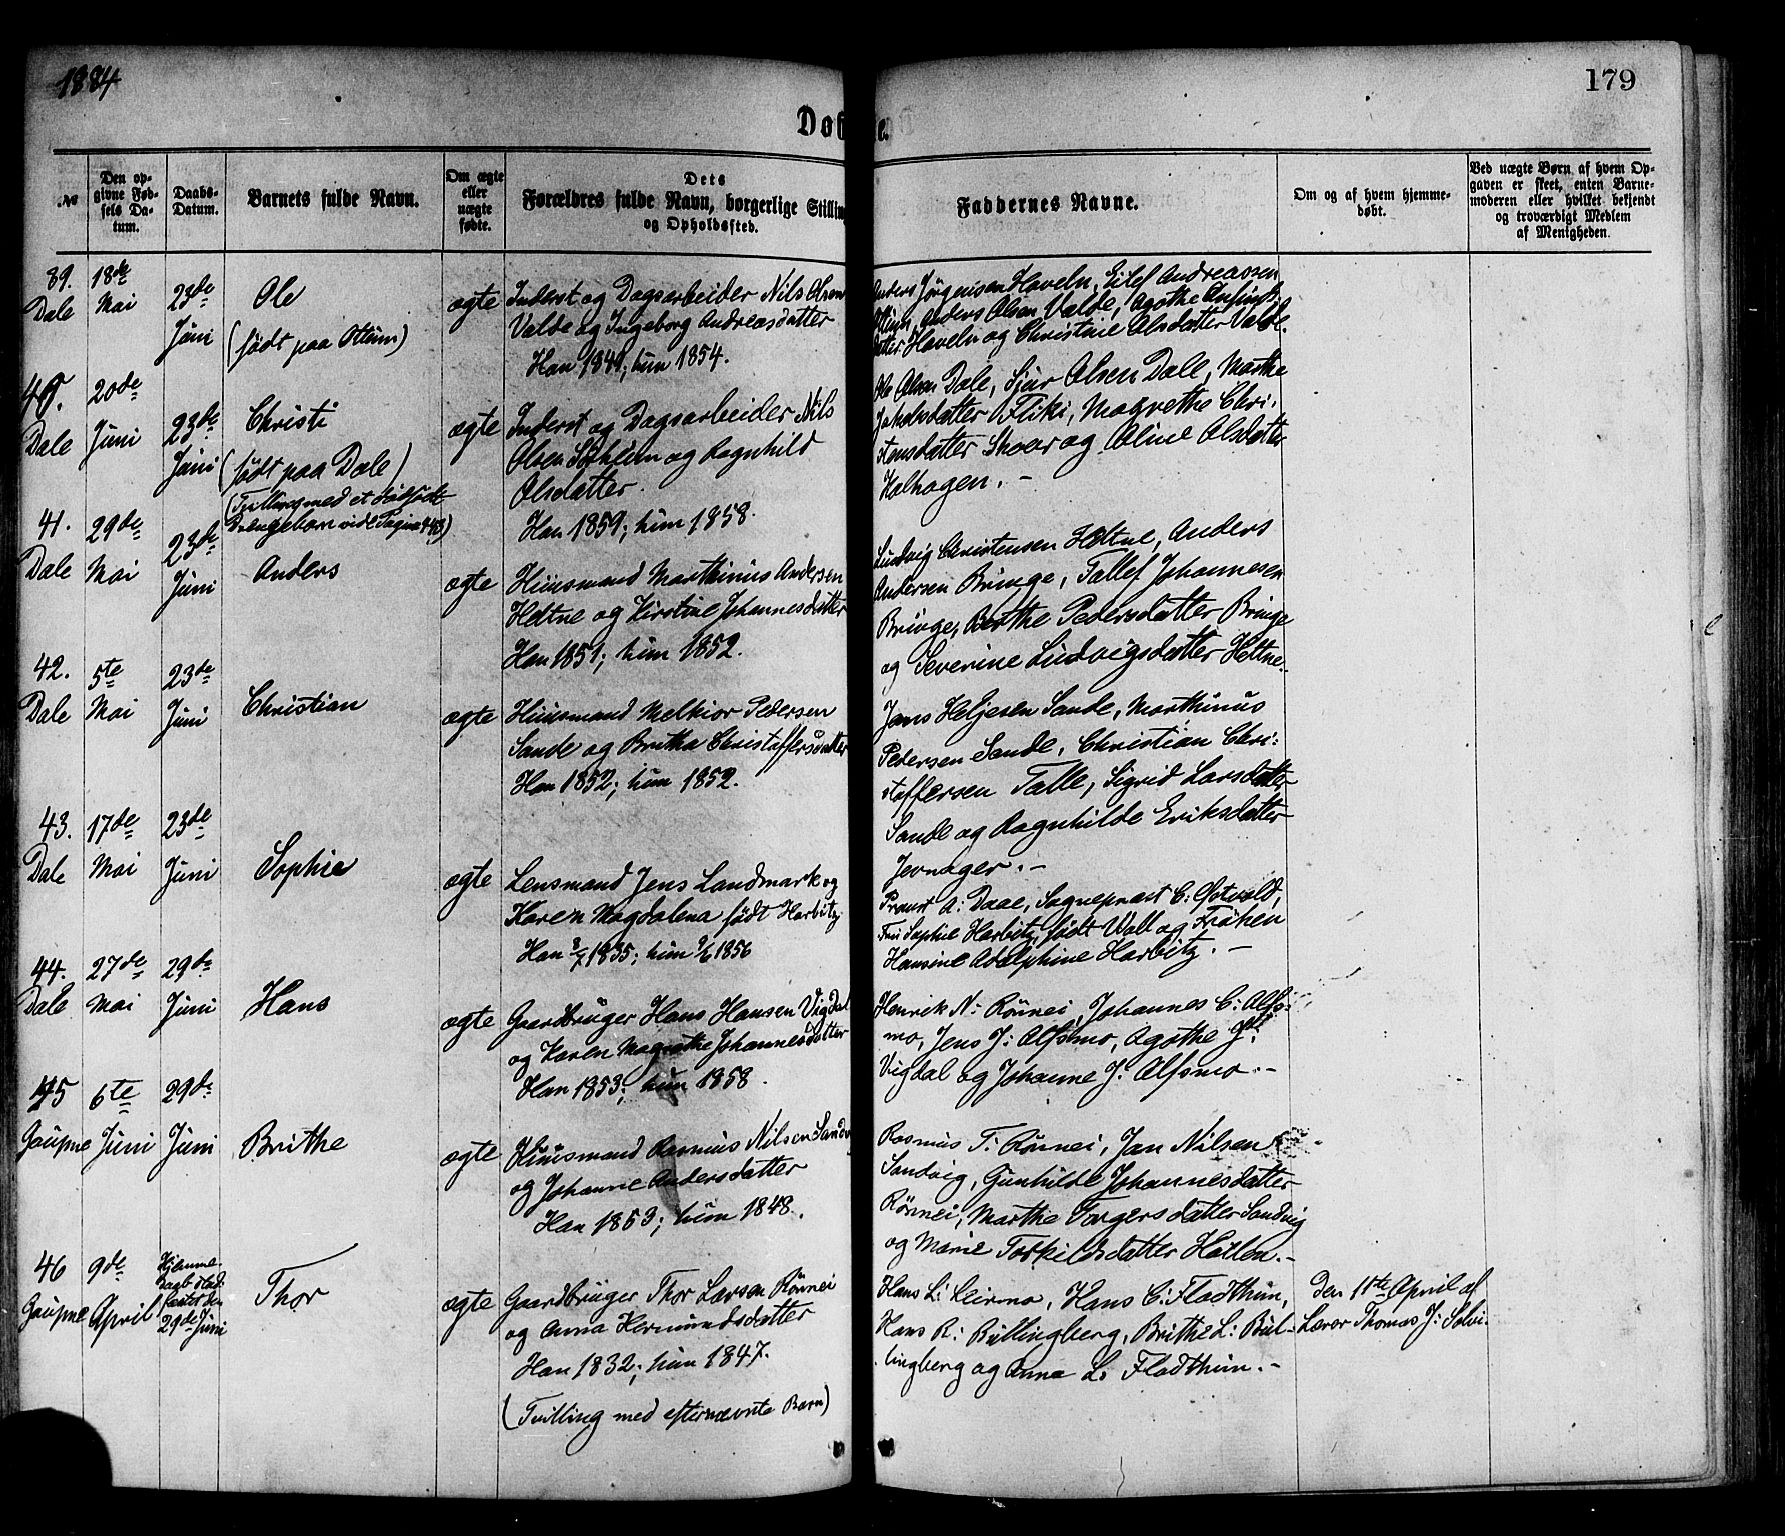 1884
179
Døbte.
№
Den opgivne Fødsels Datum.
Daabs-Datum.
Barnets fulde Navn.
Om ægte eller uægte fødte.
Dets Forældres fulde Navn, borgerlige Stilling og Opholdssted.
Faddernes Navne.
Om og af hvem hjemmedøbt.
Ved uægte Børn af hvem Opgaven er skeet, enten Barnemoderen eller hvilket bekjendt og troværdigt Medlem af Menigheden.
39. Dale
18de Mai
23de Juni
Ole
(født paa Ottum)
ægte
Inderst og Dagsarbeider Nils Olsen
Valde og Ingeborg Andreasdatter
Han 1849; hun 1854.
Anders Jørgensen Haveln, Eilef Andreassen
Ottum, Anders Olsen Valde, Agothe
datter Haveln og Christine Olsdatter Valde.
40. Dale
20de Juni
23de Juni
Christi
(født paa Dale)
(Tvilling med et dødfødt
Drengebarn vide Pagina 443)
ægte
Inderst og Dagsarbeider Nils
Olsen og Ragnhild
Olsdatter.
Han 1859; hun 1858.
Ole Olsen Dale, Sjur Olsen Dale, Marthe
Jakobsdatter Fliki, Magrethe Chri-
stensdatter Skoar og Oline Olsdatter
Kalhagen. -
41. Dale
29de Mai
23de Juni
Anders
ægte
Huusmand Marthinus Andersen
Heltne og Kirstine Johannesdatter
Han 1851; hun 1852.
Ludvig Christensen Heltne, Anders
Andersen Bringe, Tallef Johannesen
Bringe, Berthe Pedersdatter Bringe
og Severine Ludvigsdatter Heltne.
42. Dale
5te Mai
23de Juni
Christian
ægte
Huusmand Melkior Pedersen
Sande og Britha Christoffersdatter
Han 1852; hun 1852.
Jens Heljesen Sande, Marthinus
Pedersen Sande, Christian Chri-
stoffersen Talle, Sigrid Larsdatter
Sande og Ragnhilde Eriksdatter
Jevnager. -
43. Dale
17de Mai
23de Juni
Sophie
ægte
Lensmand Jens Landmark og
Karen Magdalena født Harbitz
Han 3/7 1835; hun 9/6 1856
Provst A: Daae, Sogneprest C:
Fru Sophie Harbitz, født Wall og Frøken
Hansine Adolphine Harbitz. -
44. Dale
27de Mai
29de Juni
Hans
ægte
Gaardbruger Hans Hansen Vigdal
og Karen Magrethe Johannesdatter
Han 1853; hun 1858.
Henrik N: Rønnei, Johannes C: Alfs-
mo, Jens J: Alfsmo, Agothe J:
Vigdal og Johanne J: Alfsmo. -
45 Gaupne
6te Juni
29de Juni
Brithe
ægte
Huusmand Rasmus Nilsen Sandv
og Johanne Andersdatter
Han 1853; hun 1848.
Rasmus T: Rønnei, Jan Nilsen
Sandvig, Gunhilde Johannesdatter
Rønnei, Marthe Torgersdatter Sandvig
og Marie Torkildsdatter Høilen. -
46 Gaupne
9de April
Hjemme-
Daab stad-
fæstet den
29de Juni
Thor
ægte
Gaardbruger Thor Larsen Rønnei
og Anna Hermundsdatter
Han 1832; hun 1847.
(Tvilling med efternævnte Barn)
Hans L: Leirmo, Hans C: Fladthun,
Hans R: Bullingberg, Brithe L: Bul-
lingberg og Anna L. Fladthun. -
Den 11te April af
Lærer Thomas J: Solvi.